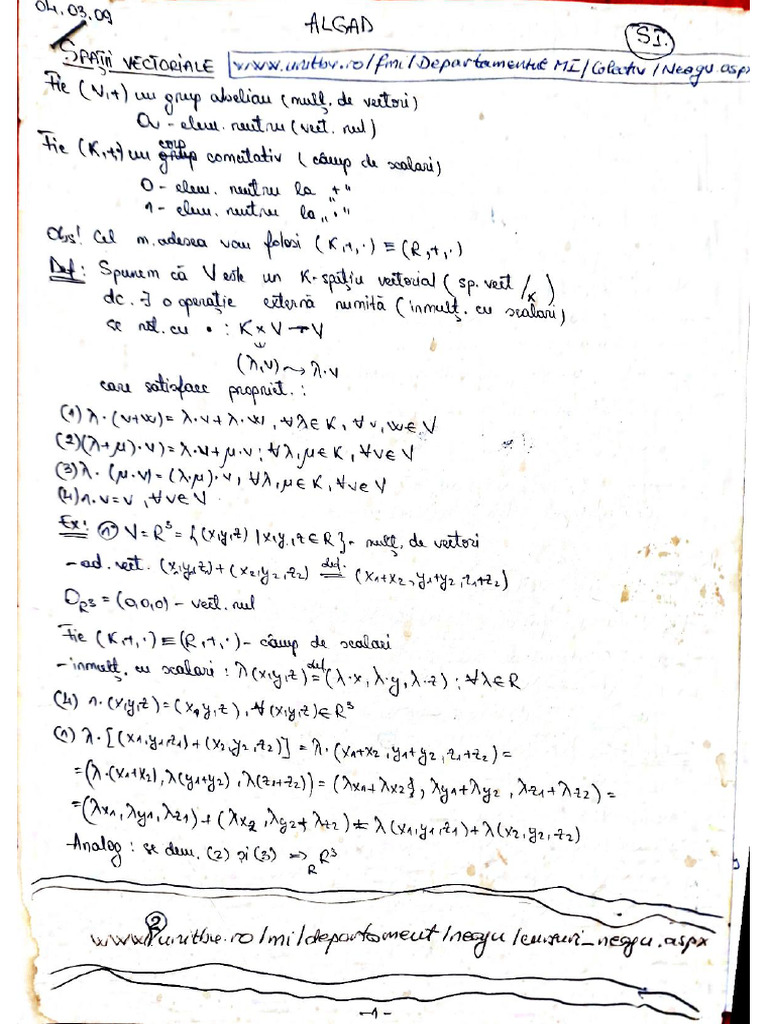 04.03.09
ALGAD
S1.
SPAŢII VECTORIALE www.unitbv.ro/fmi/Departamentul MI/Colectiv/Neagu.aspx
Fie (V,+) un grup abelian (mulţ. de vectori)
0v - elem. neutru (vect. nul)
Fie (K,+,·) un corp comutativ (câmp de scalari)
0 - elem. neutru la „+"
1 - elem. neutru la „·"
Obs! Cel m. adesea vom folosi (K,+,·) ≡ (R,+,·)
Def: Spunem că V este un K-spaţiu vectorial (sp. vect /K)
dc. ∃ o operaţie externă numită (inmulţ. cu scalari)
se not. cu • : K×V → V
(λ,v) ⤳ λ·v
care satisface propriet.:
(1) λ·(v+w) = λ·v+λ·w, ∀λ∈K, ∀v,w∈V
(2) (λ+μ)·v) = λ·v+μ·v; ∀λ,μ∈K, ∀v∈V
(3) λ·(μ·v) = (λ·μ)·v, ∀λ,μ∈K, ∀v∈V
(4) 1·v=v, ∀v∈V
Ex: 1) V=R³={(x,y,z) | x,y,z∈R} - mulţ. de vectori
- ad. vect. (x1,y1,z1)+(x2,y2,z2) =def (x1+x2, y1+y2, z1+z2)
0R³ = (0,0,0) - vect. nul
Fie (K,+,·) ≡ (R,+,·) - câmp de scalari
- inmulţ. cu scalari: λ(x,y,z) =def (λ·x, λ·y, λ·z); ∀λ∈R
(4) 1·(x,y,z) = (x,y,z), ∀(x,y,z)∈R³
(1) λ·[(x1,y1,z1)+(x2,y2,z2)] = λ·(x1+x2, y1+y2, z1+z2) =
=(λ·(x1+x2), λ(y1+y2), λ(z1+z2)) = (λx1+λx2, λy1+λy2, λz1+λz2) =
=(λx1, λy1, λz1) + (λx2, λy2, λz2) = λ(x1,y1,z1)+λ(x2,y2,z2)
Analog: se dem. (2) şi (3) => R R³
2
www.unitbv.ro/mi/departament/neagu/cursuri_neagu.aspx
-1-